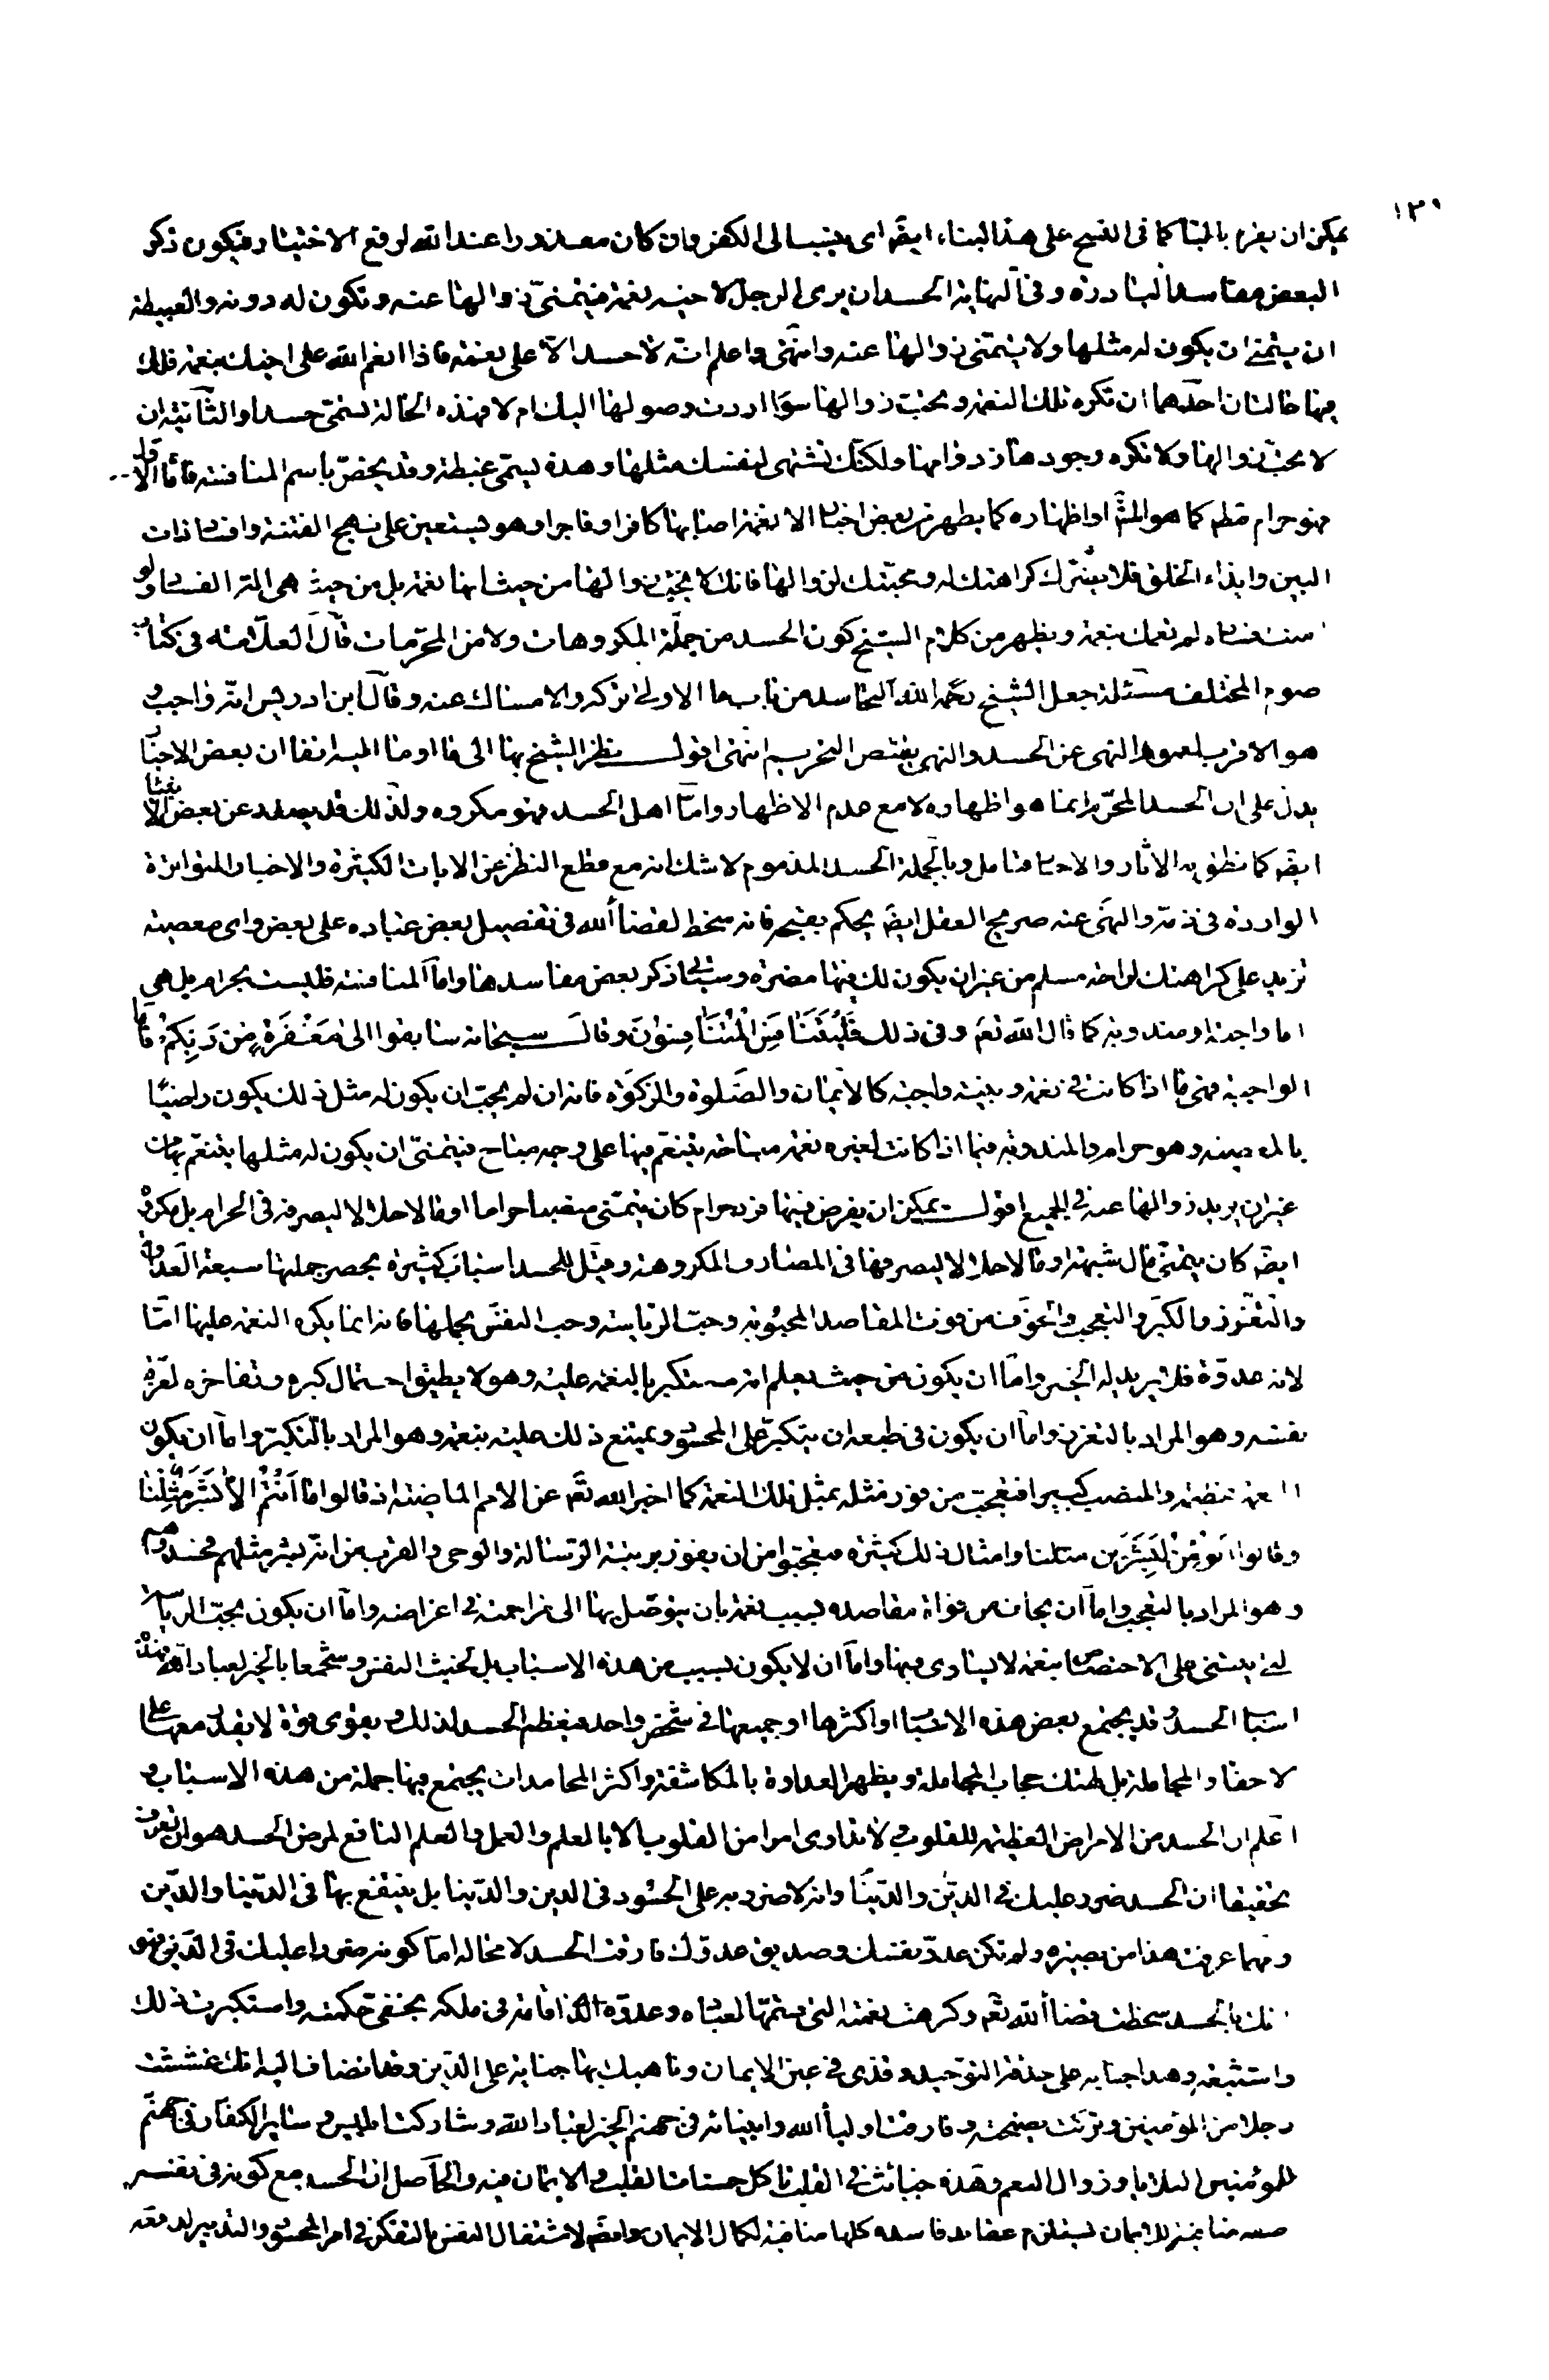 ١٣٩
يمكن ان يفرم بالمتنا كما فى الفسخ على هذا البناء ايضا اى ينسب الى الكفر وان كان معذورا عند الله لرفع الاختيار فيكون ذكر
البعض مفاسد النادرة وفى النهاية الحسد ان يرى الرجل لاخيه نعمة فيتمنى زوالها عنه وتكون له دونه والغبطة
ان يتمنى ان يكون له مثلها ولا يتمنى زوالها عنه وانتهى واعلم انه لا حسد الا على نعمة فاذا انعم الله على اخيك بنعمة فلك
فيها حالتان احدهما ان تكره تلك النعمة وتحب زوالها سواء اردت وصولها اليك ام لا فهذه الحالة تسمى حسدا والثانية ان
لا تحب زوالها ولا تكره وجودها ودوامها ولكنك تشتهى لنفسك مثلها وهذه تسمى غبطة وقد يخص باسم المنافسة فاما الاول
فهو حرام مطم كما هو المش او اظهاره كما يظهر من بعض اخبار الا نعمة اصابها كافر او فاجر وهو يستعين على تهيج الفتنة وافساد ذات
البين وايذاء الخلق فلا يضرك كراهتك له ومحبتك لزوالها فانك لا تحب زوالها من حيث انها نعمة بل من حيث هى الة الفساد ولو
امنت فساده لم تغمك بنعمة ويظهر من كلام الشيخ كون الحسد من جملة المكروهات ولا من المحرمات قال العلامة فى كتاب
صوم المختلف مسئلة جعل الشيخ رحمه الله التحاسد من باب ما الاولى تركه والامساك عنه وقال ابن ادريس انه واجب و
هو الاقرب لعموم النهى عن الحسد والنهى يقتضى التحريم انتهى اقول نظر الشيخ بها الى ما اومأنا اليه انفا ان بعض الاخبار
يدل على ان الحسد المحرم انما هو اظهاره لا مع عدم الاظهار واما اصل الحسد فهو مكروه ولذلك قد يصدر عن بعض الانبياء
ايضا كما نطق به الاثار والاخبار فتامل وبالجملة الحسد المذموم لا شك انه مع قطع النظر عن الايات الكثيرة والاخبار المتواترة
الواردة فى ذمه والنهى عنه صريح العقل ايضا يحكم بقبحه فانه سخط لقضاء الله فى تفضيل بعض عباده على بعض واى معصية
تزيد على كراهتك لراحة مسلم من غير ان يكون لك فيها مضرة وسياتى ذكر بعض مفاسدها واما المنافسة فليست بحرام بل هى
اما واجبة او مندوبة كما قال الله تعم وفى ذلك فليتنافس المتنافسون وقال سبحانه سابقوا الى مغفرة من ربكم فاما
الواجبة فهى ما اذا كانت فى نعمة دينية واجبة كالايمان والصلوة والزكوة فانه ان لم يحب ان يكون له مثل ذلك يكون راضيا
بالمعصية وهو حرام والمندوبة فيما اذا كانت لغيره نعمة مباحة يتنعم فيها على وجه مباح فيتمنى ان يكون له مثلها يتنعم بها من
غير ان يريد زوالها عنه فى الجميع اقول يمكن ان يفرض فيها فرد حرام كان يتمنى منصبا حراما او مالا حلالا ليصرفه فى الحرام بل مكروه
ايضا كان يتمنى مال شبهة او مالا حلالا ليصرفها فى المصارف المكروهة وقيل للحسد اسباب كثيرة يحصر جملتها سبعة العداوة
والتعزز والكبر والتعجب والخوف من فوت المقاصد المحبوبة وحب الرياسة وحب النفس بجملها فانه انما يكره النعمة عليها اما
لانه عدوه فلا يريد له الخير واما ان يكون من حيث يعلم انه مستكبر بالنعمة عليه وهو لا يطيق احتمال كبره وتفاخره لعزة
نفسه وهو المراد بالتعزز واما ان يكون فى طبعه ان يتكبر على المحسود ويمتنع ذلك عليه بنعمة وهو المراد بالتكبر واما ان يكون
النعمة عظيمة والمنصب كبيرا فتعجب من فوز مثله بمثل تلك النعمة كما اخبر الله تعم عن الامم الماضية اذ قالوا ما انتم الا بشر مثلنا
وقالوا انؤمن لبشرين مثلنا وامثال ذلك كثيرة فتعجبوا من ان يفوز برتبة الرسالة والوحى والقرب من الله بشر مثلهم فحسدوهم
وهو المراد بالتعجب واما ان يخاف من فوات مقاصده بسبب نعمة بان يتوصل بها الى مزاحمته فى اغراضه واما ان يكون يحب الرياسة
التى يبتنى على الاختصاص بنعمة لا يساوى فيها واما ان لا يكون بسبب من هذه الاسباب بل لخبث النفس وشحها بالخير لعباد الله فهذه
اسباب الحسد وقد يجتمع بعض هذه الاسباب او اكثرها او جميعها فى شخص واحد فيعظم الحسد لذلك ويقوى قوة لا يقدر معها على
الاخفاء والمجاملة بل يهتك حجاب المجاملة ويظهر العداوة بالمكاشفة واكثر المحاسدات يجتمع فيها جملة من هذه الاسباب و
اعلم ان الحسد من الامراض العظيمة للقلوب ولا تداوى امراض القلوب الا بالعلم والعمل والعلم النافع لمرض الحسد هو ان تعرف
تحقيقا ان الحسد ضرر عليك فى الدين والدنيا وانه لا ضرر به على المحسود فى الدين والدنيا بل ينتفع بها فى الدنيا والدين
ومهما عرفت هذا من بصيرة ولم تكن عدو نفسك وصديق عدوك فارقت الحسد لا محالة اما كونه ضررا عليك فى الدين فهو
انك بالحسد سخطت قضاء الله تعم وكرهت نعمته التى قسمها لعباده وعدله الذى اقامه فى ملكه بخفى حكمته واستكبرت ذلك
واستشبعته وهذا جناية على حدقة التوحيد وقذى فى عين الايمان وناهيك بها جناية على الدين وقد انضاف اليه انك غششت
رجلا من المؤمنين وتركت نصيحته وفارقت اولياء الله وانبيائه فى حبهم الخير لعباد الله وشاركت ابليس وسائر الكفار فى محبتهم
للمؤمنين البلايا وزوال النعم وهذه خبائث فى القلب تاكل حسنات القلب والايمان فيه والحاصل ان الحسد مع كونه فى نفسه
صفة منافية للايمان يستلزم عقائد فاسدة كلها منافية لكمال الايمان وايضا لاشتغال النفس بالتفكر فى امر المحسود والتدبير لدفعه